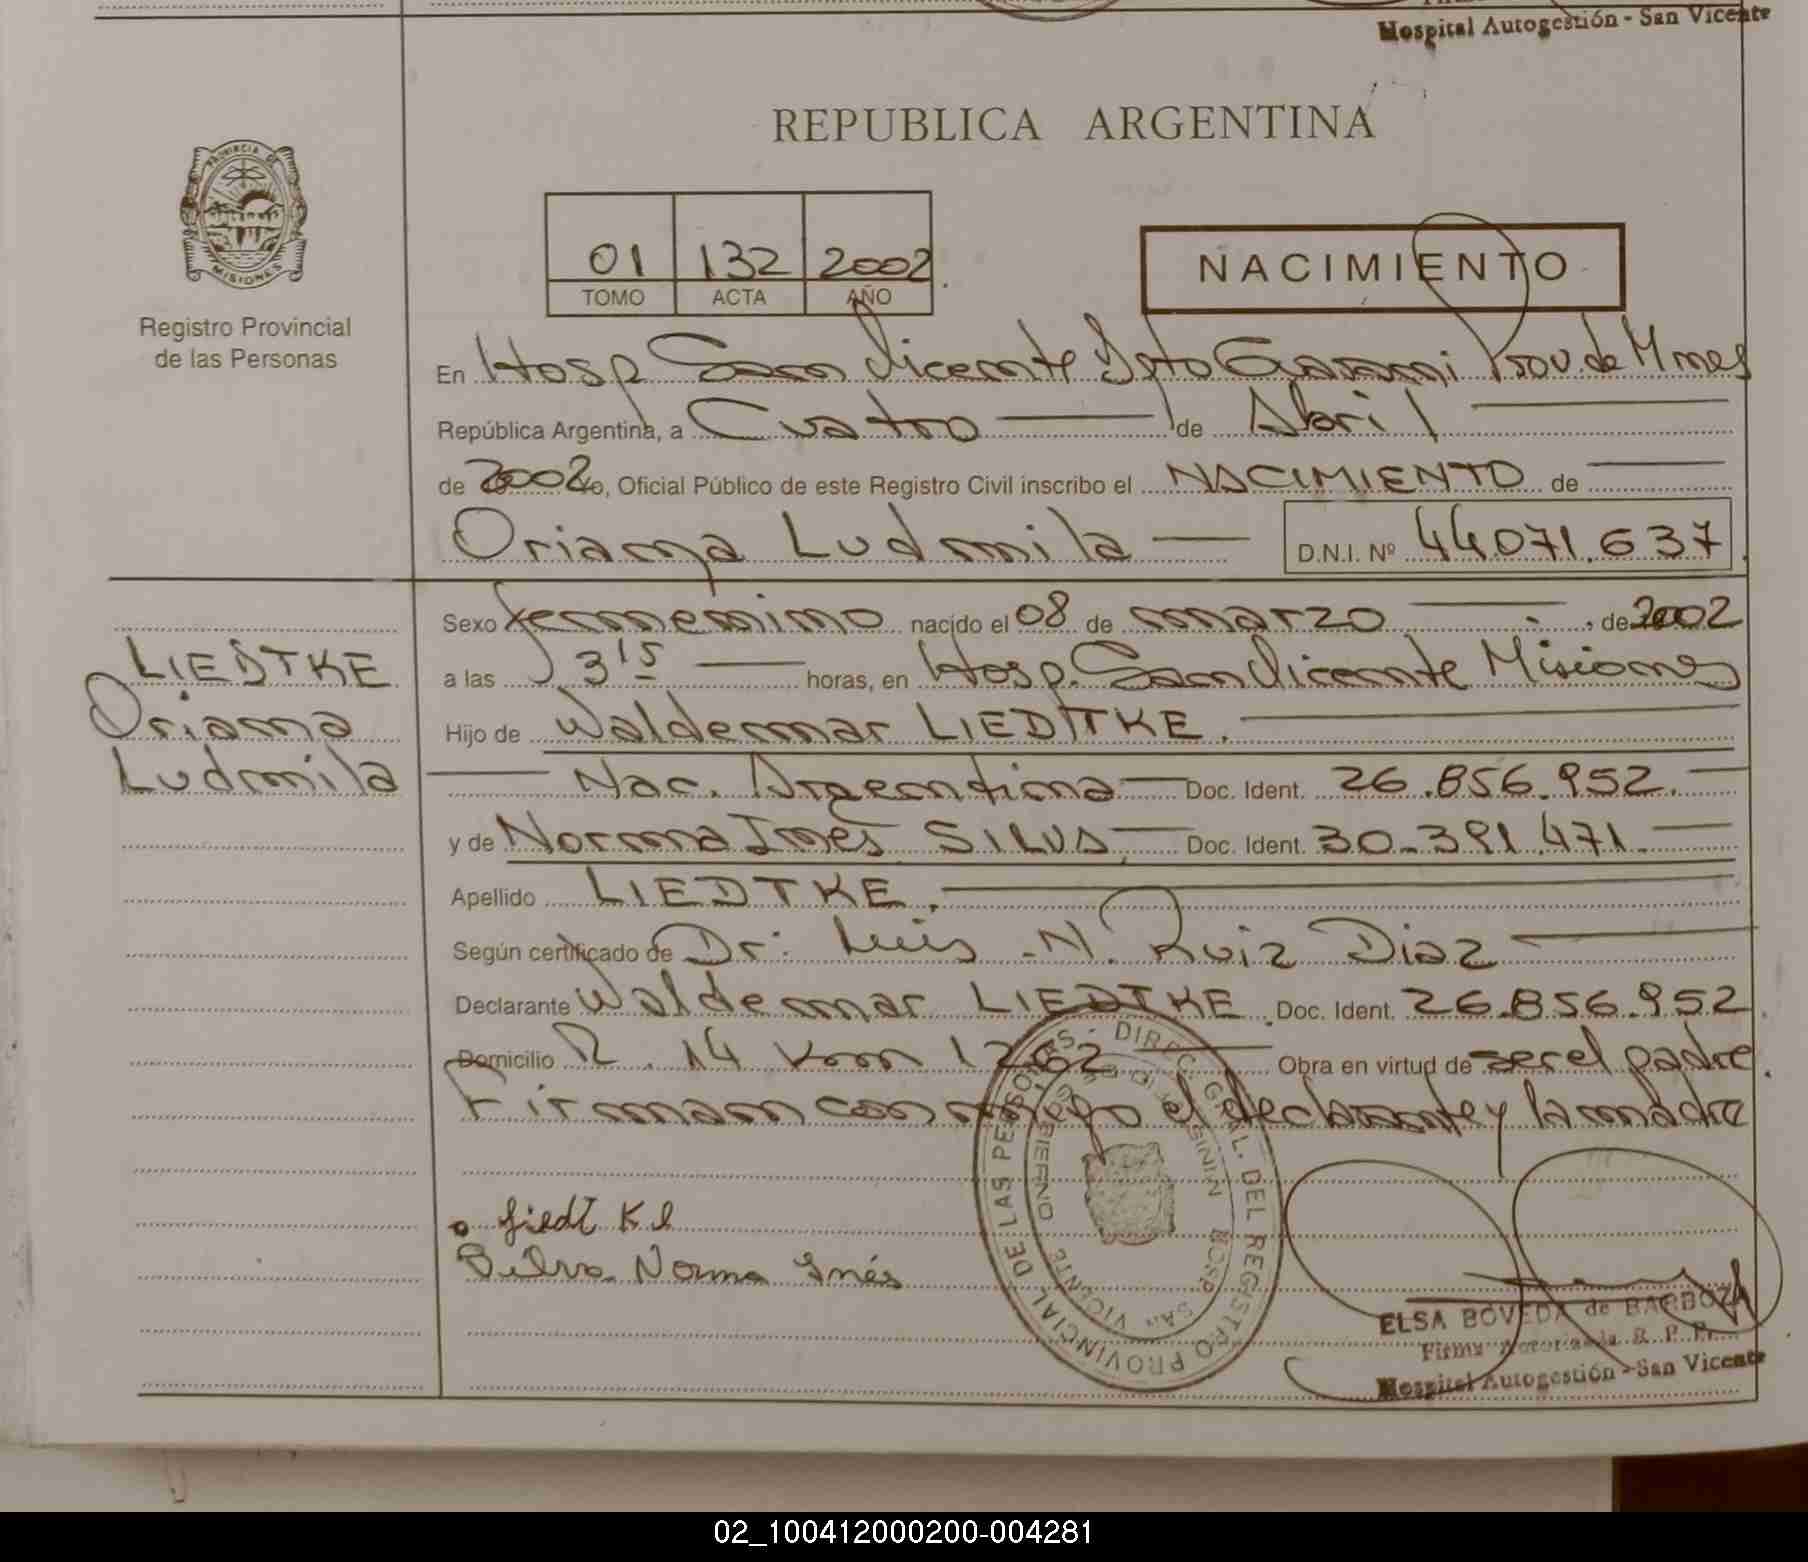 Hospital Autogestión - San Vicente
REPUBLICA ARGENTINA
PROVINCIA DE MISIONES
Registro Provincial
de las Personas
01 132 2002
TOMO ACTA AÑO
NACIMIENTO
En Hosp San Vicente Dpto Guarani Prov. de Mnes
República Argentina, a Cuatro de Abril
de 2002 yo, Oficial Público de este Registro Civil inscribo el NACIMIENTO de
Oriana Ludmila D.N.I. Nº 44071.637
LIEDTKE
Oriana
Ludmila
Sexo femenino nacido el 08 de marzo de 2002
a las 3 15 horas, en Hosp. San Vicente Misiones
Hijo de Waldemar LIEDTKE.
Nac. Argentina Doc. Ident. 26.856.952.
y de Norma Inés SILVA, Doc. Ident. 30.391.471.
Apellido LIEDTKE.
Según certificado de Dr: Luis N. Ruiz Diaz
Declarante Waldemar LIEDTKE. Doc. Ident. 26.856.952
Domicilio R. 14 Km 1262 Obra en virtud de ser el padre.
Firman conmigo el declarante y la madre
Liedtke
Silva Norma Inés
DIREC. GRAL. DEL REGISTRO PROVINCIAL DE LAS PERSONAS
HOSP. SAN VICENTE
ELSA BOVEDA de BARBOZA
Firma Autorizada R. P. P.
Hospital Autogestión - San Vicente
02_100412000200-004281